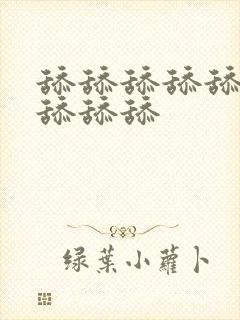 舔舔舔舔舔
舔舔舔
绿葉小蘿卜